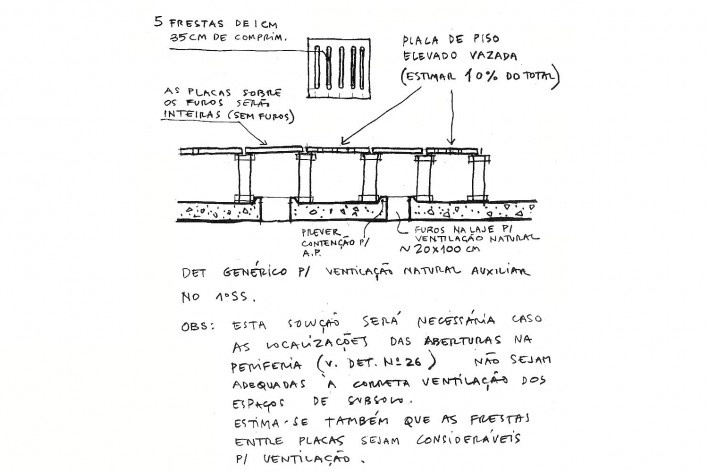 5 FRESTAS DE 1 CM
35CM DE COMPRIM.
PLACA DE PISO
ELEVADO VAZADA
(ESTIMAR 10% DO TOTAL)
AS PLACAS SOBRE
OS FUROS SERÃO
INTEIRAS (SEM FUROS)
PREVER
CONTENÇÃO P/
A.P.
FUROS NA LAJE P/
VENTILAÇÃO NATURAL
~ 20X100 CM
DET GENÉRICO P/ VENTILAÇÃO NATURAL AUXILIAR
NO 1ºSS.
OBS: ESTA SOLUÇÃO SERÁ NECESSÁRIA CASO
AS LOCALIZAÇÕES DAS ABERTURAS NA
PERIFERIA (V. DET. Nº 26) NÃO SEJAM
ADEQUADAS À CORRETA VENTILAÇÃO DOS
ESPAÇOS DE SUBSOLO.
ESTIMA-SE TAMBÉM QUE AS FRESTAS
ENTRE PLACAS SEJAM CONSIDERÁVEIS
P/ VENTILAÇÃO.